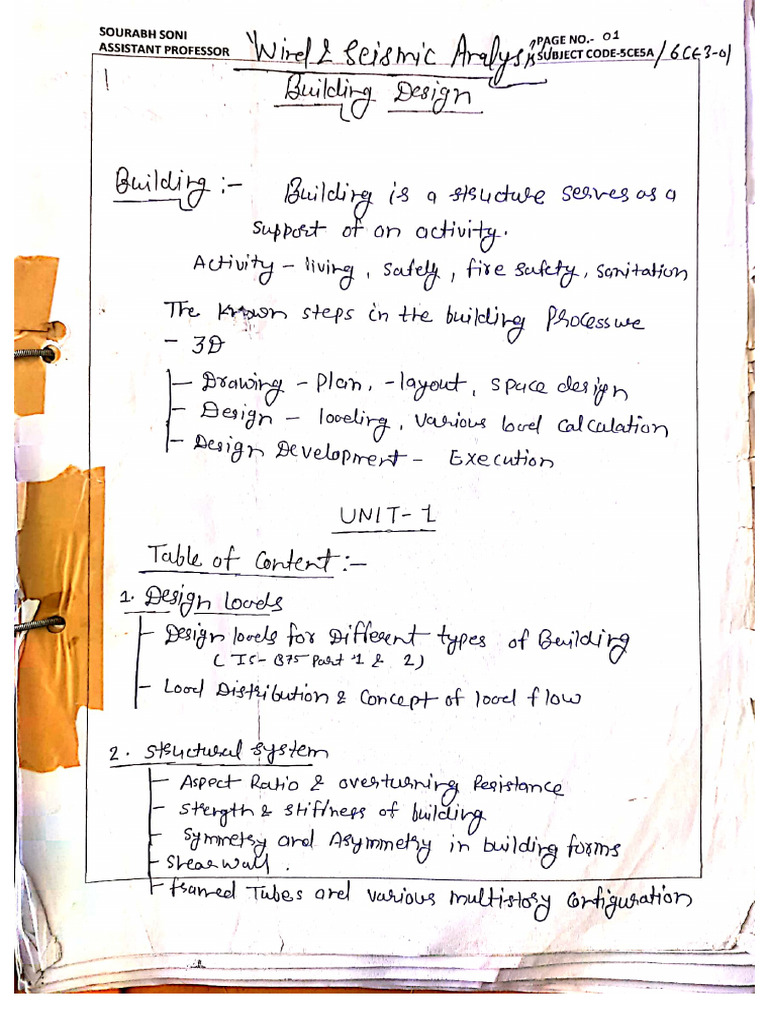 SOURABH SONI
ASSISTANT PROFESSOR
PAGE NO.- 01
SUBJECT CODE-5CE5A/6CE3-01
Wind & Seismic Analysis
Building Design
Building :- Building is a structure serves as a
support of an activity.
Activity - living, safely, fire safety, sanitation
The known steps in the building Processure
- 3D
- Drawing - Plan, -layout, space design
- Design - loading, various load calculation
- Design Development - Execution
UNIT-1
Table of Content :-
1. Design Loads
- Design loads for Different types of Building
( IS- 875 Part 1 & 2)
- Load Distribution & Concept of load flow
2. Structural system
- Aspect Ratio & overturning Resistance
- Strength & stiffness of building
- Symmetry and Asymmetry in building forms
- Shear wall.
- framed Tubes and various multistory configuration